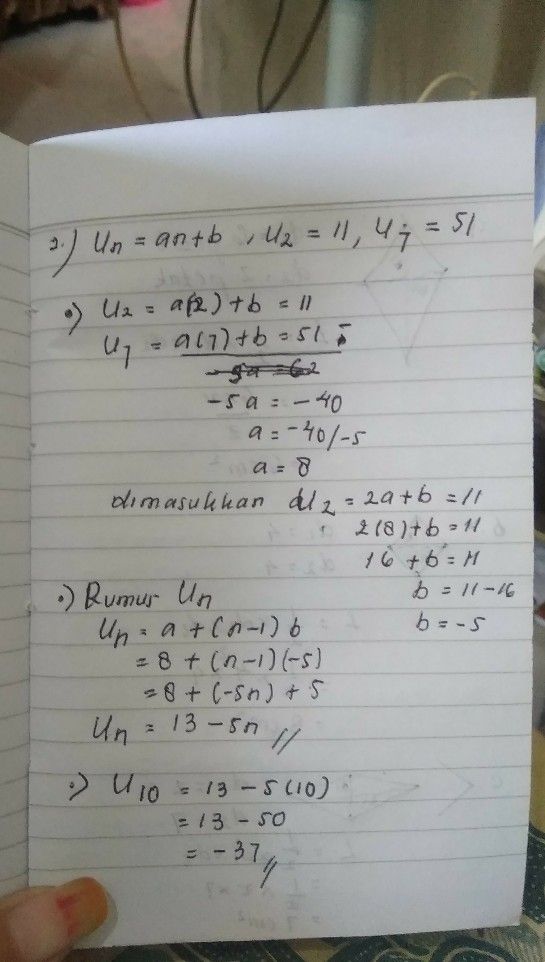 2.) Un = an+b , U2 = 11, U7 = 51
•) U2 = a(2) + b = 11
U7 = a(7) + b = 51 -
-5a = 62
-5a = -40
a = -40/-5
a = 8
dimasukkan U2 = 2a+b = 11
2(8)+b = 11
16 + b = 11
b = 11-16
b = -5
•) Rumus Un
Un = a + (n-1) b
= 8 + (n-1)(-5)
= 8 + (-5n) + 5
Un = 13 - 5n //
•) U10 = 13 - 5(10)
= 13 - 50
= -37 //